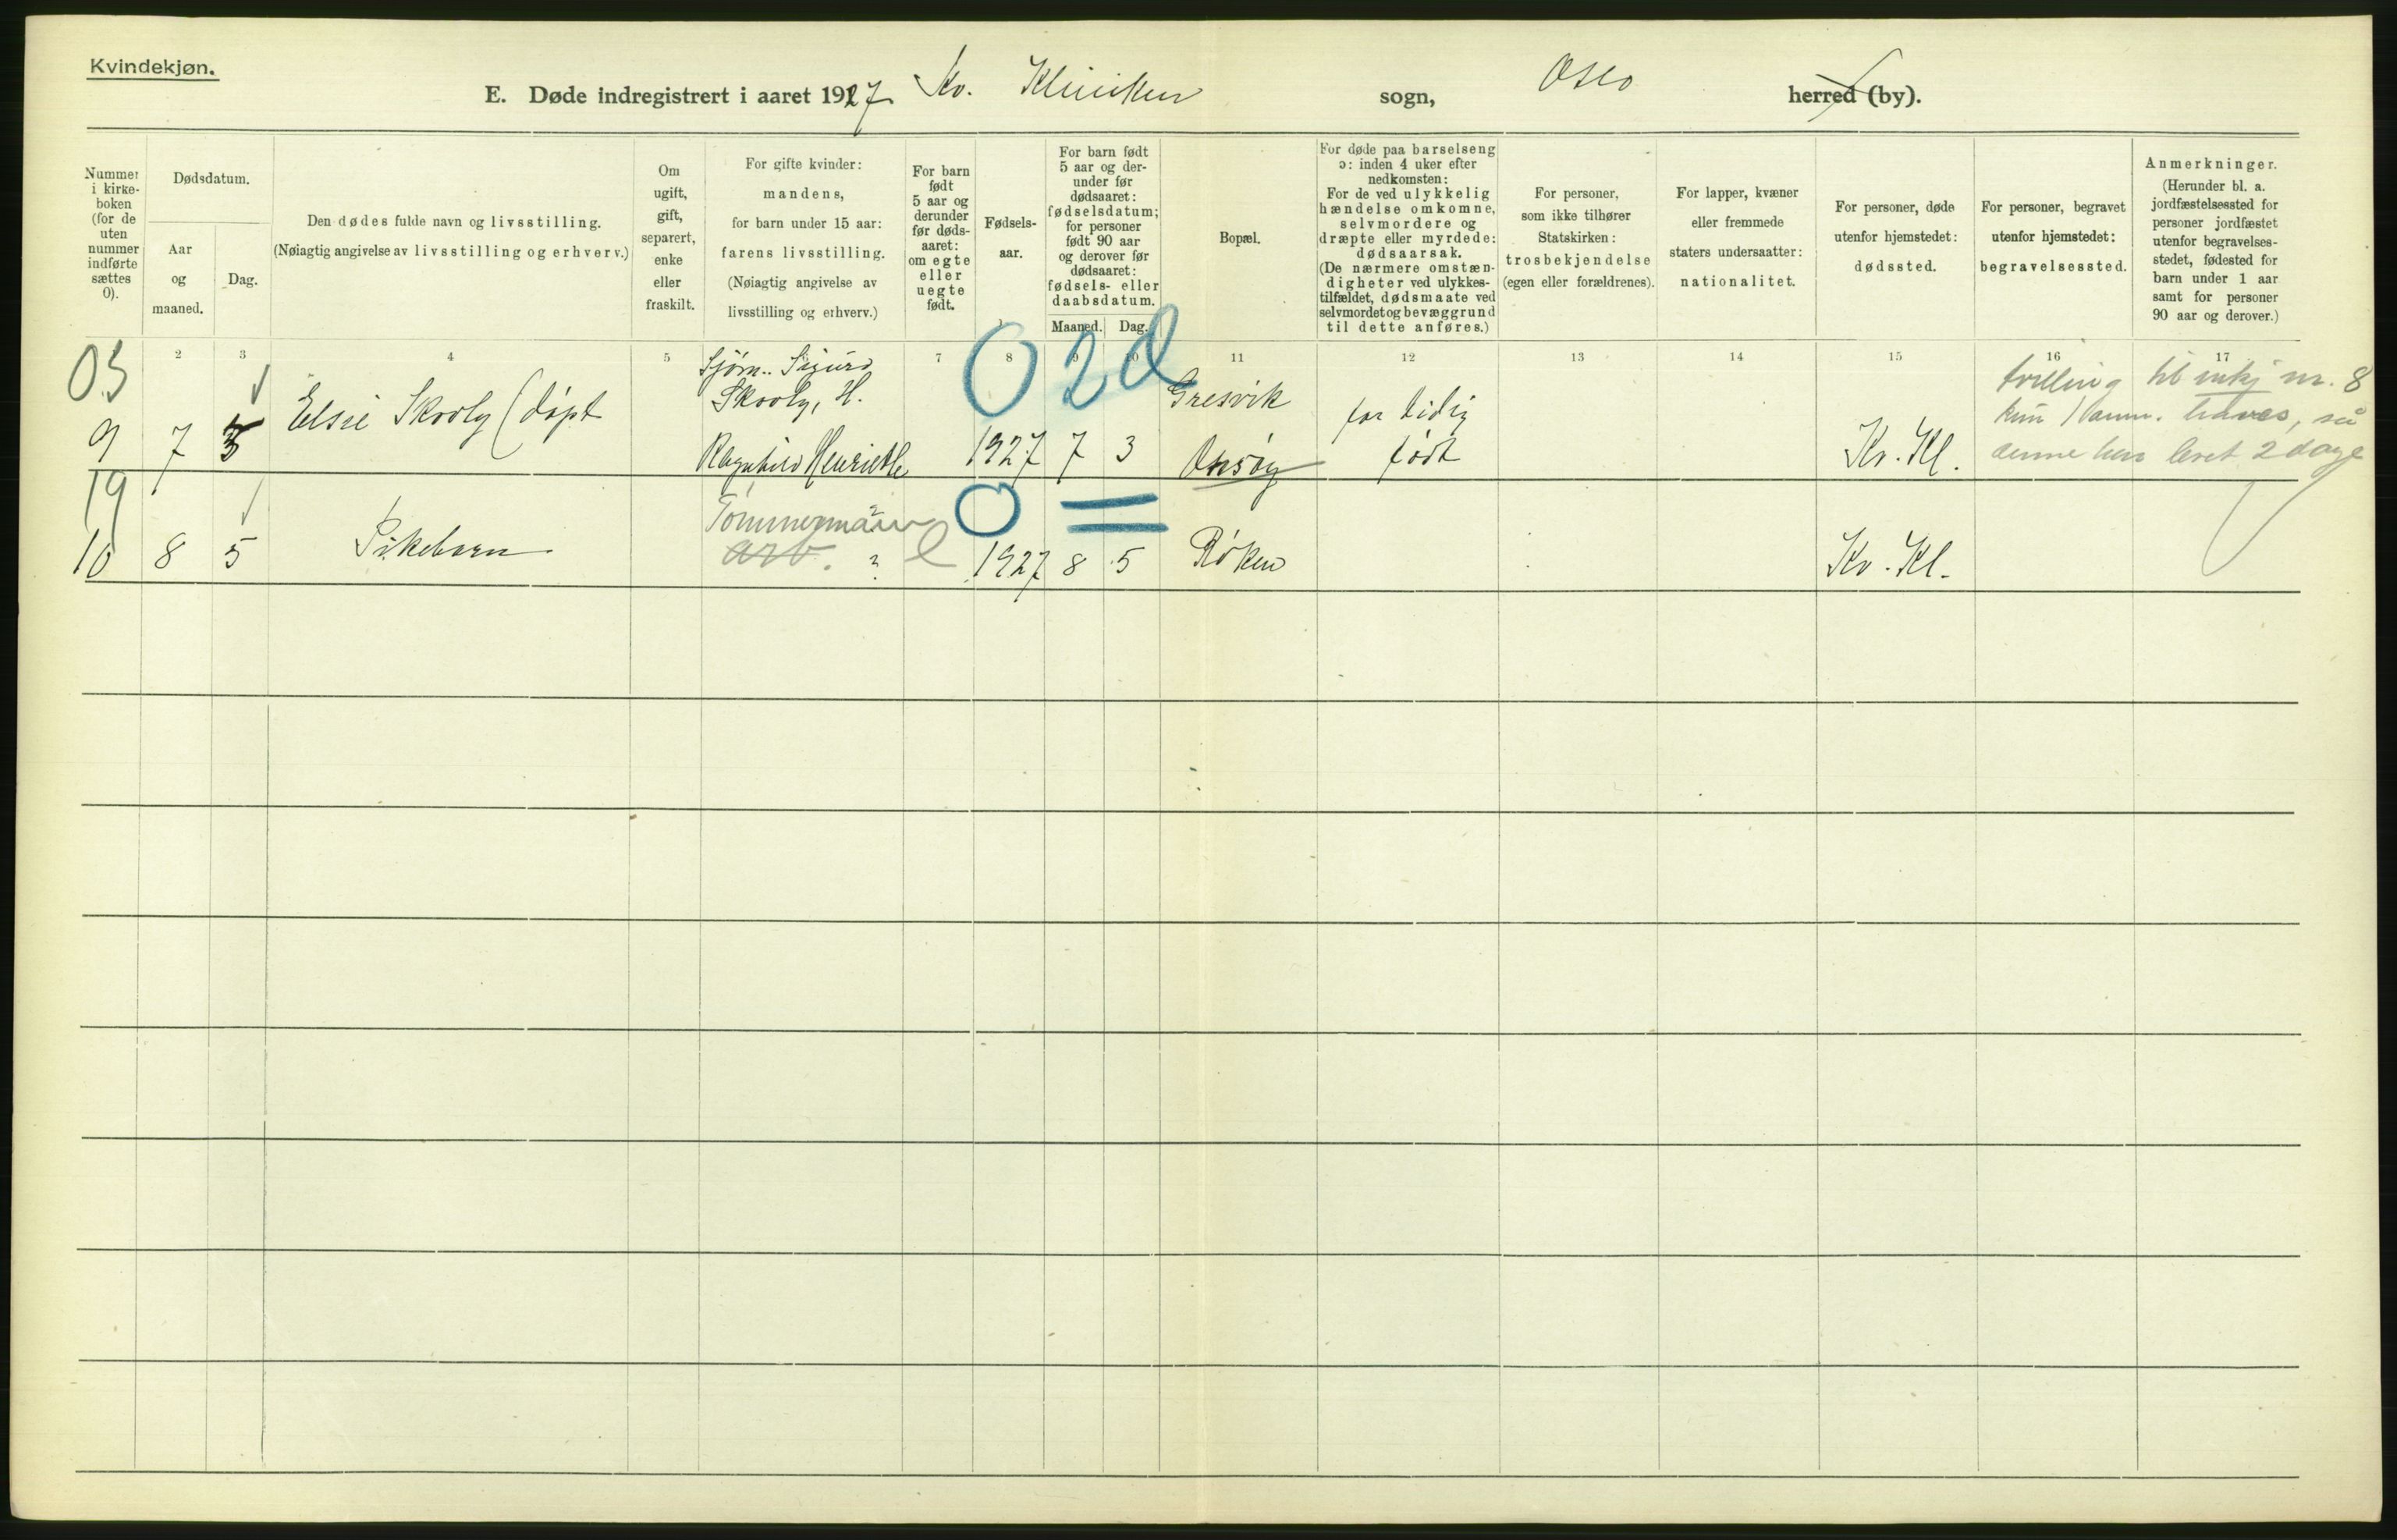 Kvindekjøn.
E. Døde indregistrert i aaret 1927 Kv. Klinikken sogn, Oslo herred (by).
Nummer i kirkeboken (for de uten nummer indførte sættes 0).
Dødsdatum.
Aar og maaned.
Dag.
Den dødes fulde navn og livsstilling.
(Nøiagtig angivelse av livsstilling og erhverv.)
Om ugift, gift, separert, enke eller fraskilt.
For gifte kvinder: mandens, for barn under 15 aar: farens livsstilling.
(Nøiagtig angivelse av livsstilling og erhverv.)
For barn født 5 aar og derunder før dødsaaret: om egte eller uegte født.
Fødselsaar.
For barn født 5 aar og derunder før dødsaaret: fødselsdatum; for personer født 90 aar og derover før dødsaaret: fødsels- eller daabsdatum.
Maaned. Dag.
Bopæl.
For døde paa barselseng ɔ: inden 4 uker efter nedkomsten:
For de ved ulykkelig hændelse omkomne, selvmordere og dræpte eller myrdede: dødsaarsak.
(De nærmere omstændigheter ved ulykkestilfældet, dødsmaate ved selvmordet og bevæggrund til dette anføres.)
For personer, som ikke tilhører Statskirken: trosbekjendelse (egen eller forældrenes).
For lapper, kvæner eller fremmede staters undersaatter: nationalitet.
For personer, døde utenfor hjemstedet: dødssted.
For personer, begravet utenfor hjemstedet: begravelsessted.
Anmerkninger.
(Herunder bl. a. jordfæstelsessted for personer jordfæstet utenfor begravelsesstedet, fødested for barn under 1 aar samt for personer 90 aar og derover.)
2 3 4 5 7 8 9 10 11 12 13 14 15 16 17
03
9 7 3 Elsie Skovly (døpt
Sjøm. Sigurd
Skovly, H.
Ragnhild Henriette
0 2d
1927 7 3
Gresvik
Onsøy
for tidig
født
Kv. Kl.
tvilling til nr. 8
kun 1 haves, så
denne har levet 2 dage
19
10 8 5 Pikebarn
Tømmermann
arb. ?
0 =
1927 8 5 Røken Kv. Kl.